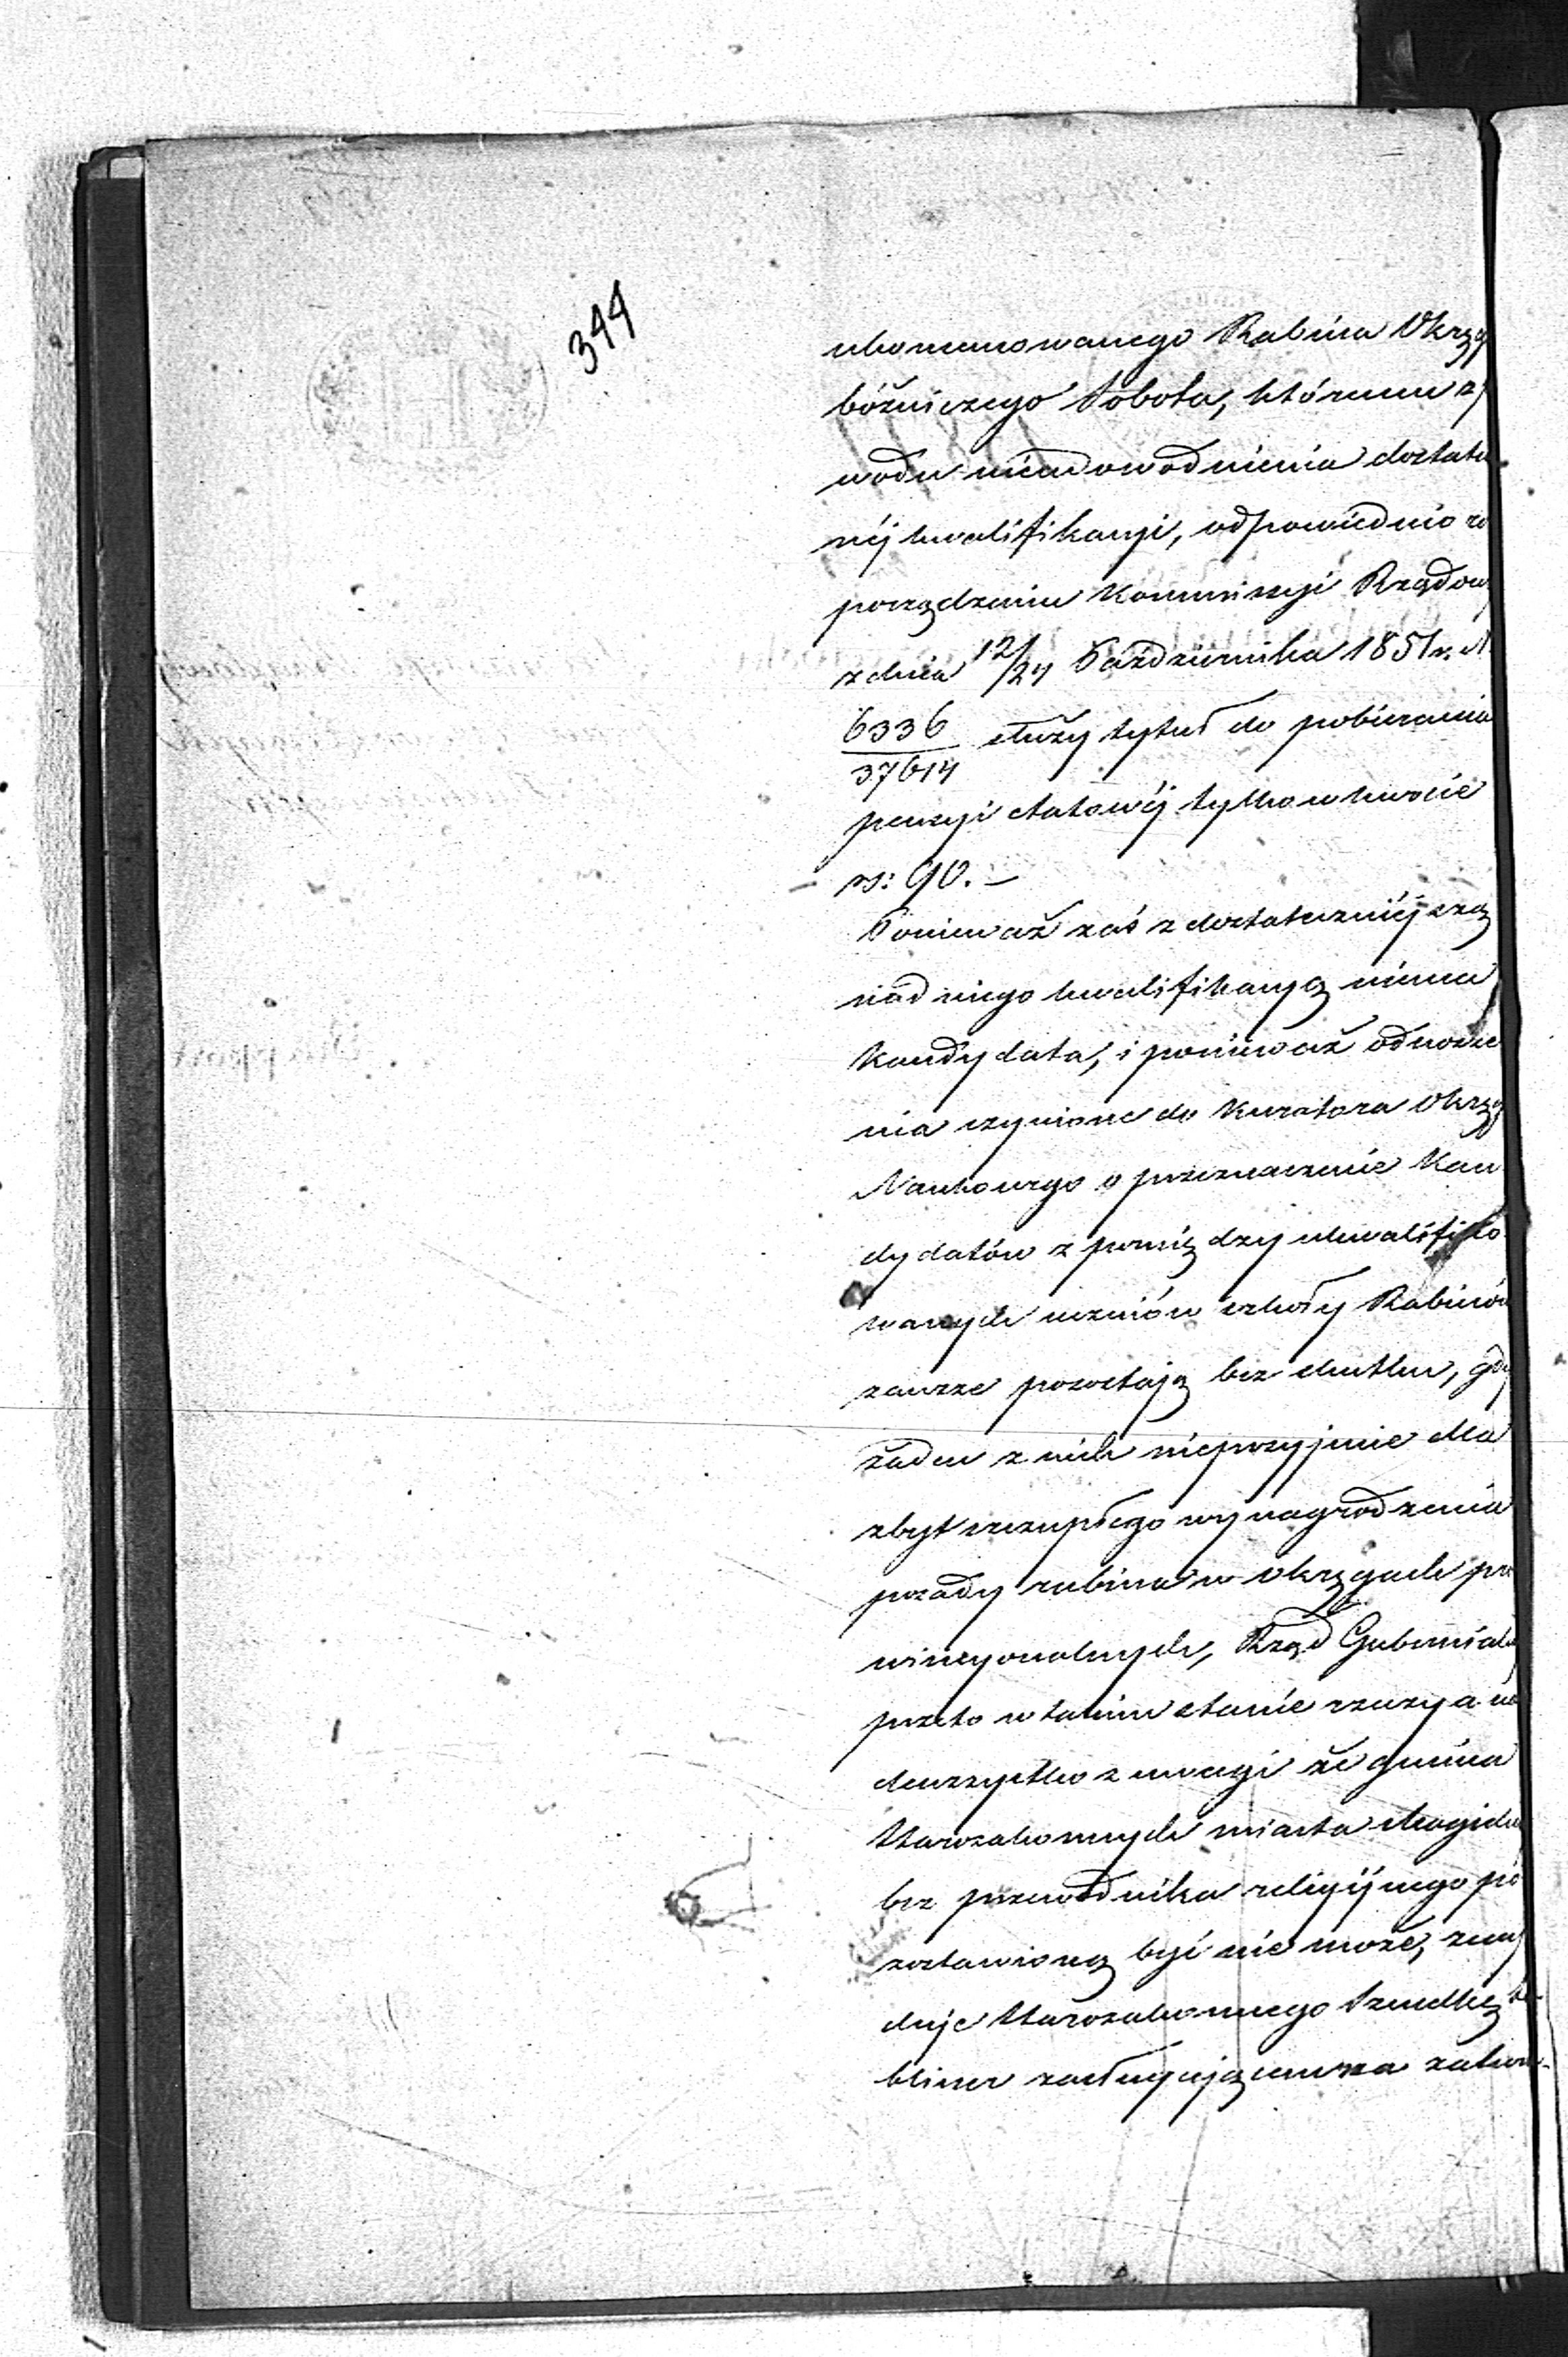 344
ukomunowanego Rabina Okrę
bóżniczego Sobota, któremu z
wodu nieudowodnienia dostate
néj kwalifikacyi, odpowiednio ro
porządzeniu Kommissyi Rządow
z dnia 12/24 Października 1851 r. N
6336/37614 służy tytuł do pobierania
pensyi etatowéj tylko w kwocie
rs: 90. —
Ponieważ zaś z dostateczniéjszą
nad niego kwalifikacyą niema
Kandydata, i ponieważ odnosze
nia czynione do Kuratora Okrę
Naukowego o przeznaczenie Kan
dydatów z pomiędzy ukwalifiko
wanych uczniów szkoły Rabinów
zawsze pozostają bez skutku, gdy
żaden z nich nieprzyjmie dla
zbyt szczupłego wynagrodzenia
posady rabina w okręgach pro
wincyonalnych, Rząd Gubernialny
przeto w takim stanie rzeczy a na
dewszystko z uwagi że gmina
Starozakonnych miasta
bez przewodnika religijnego po
zostawioną być nie może, znaj
duje Starozakonnego Szmelkę
zasługującym na zatwier-